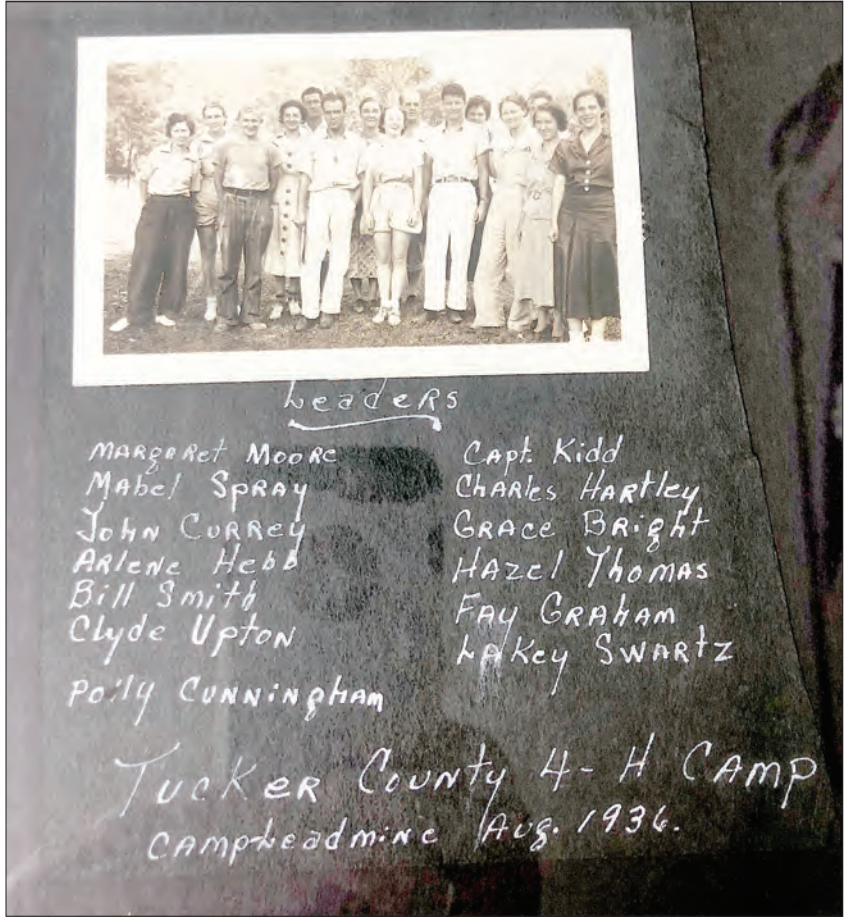 Leaders
Margaret Moore
Mabel Spray
John Currey
Arlene Hebb
Bill Smith
Clyde Upton
Polly Cunningham
Capt. Kidd
Charles Hartley
Grace Bright
Hazel Thomas
Fay Graham
Lakey Swartz
Tucker County 4-H Camp
Camp Leadmine Aug. 1936.